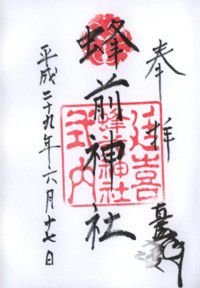 奉拝
蜂前神社
平成二十九年六月十七日
延喜
式内
蜂前神社